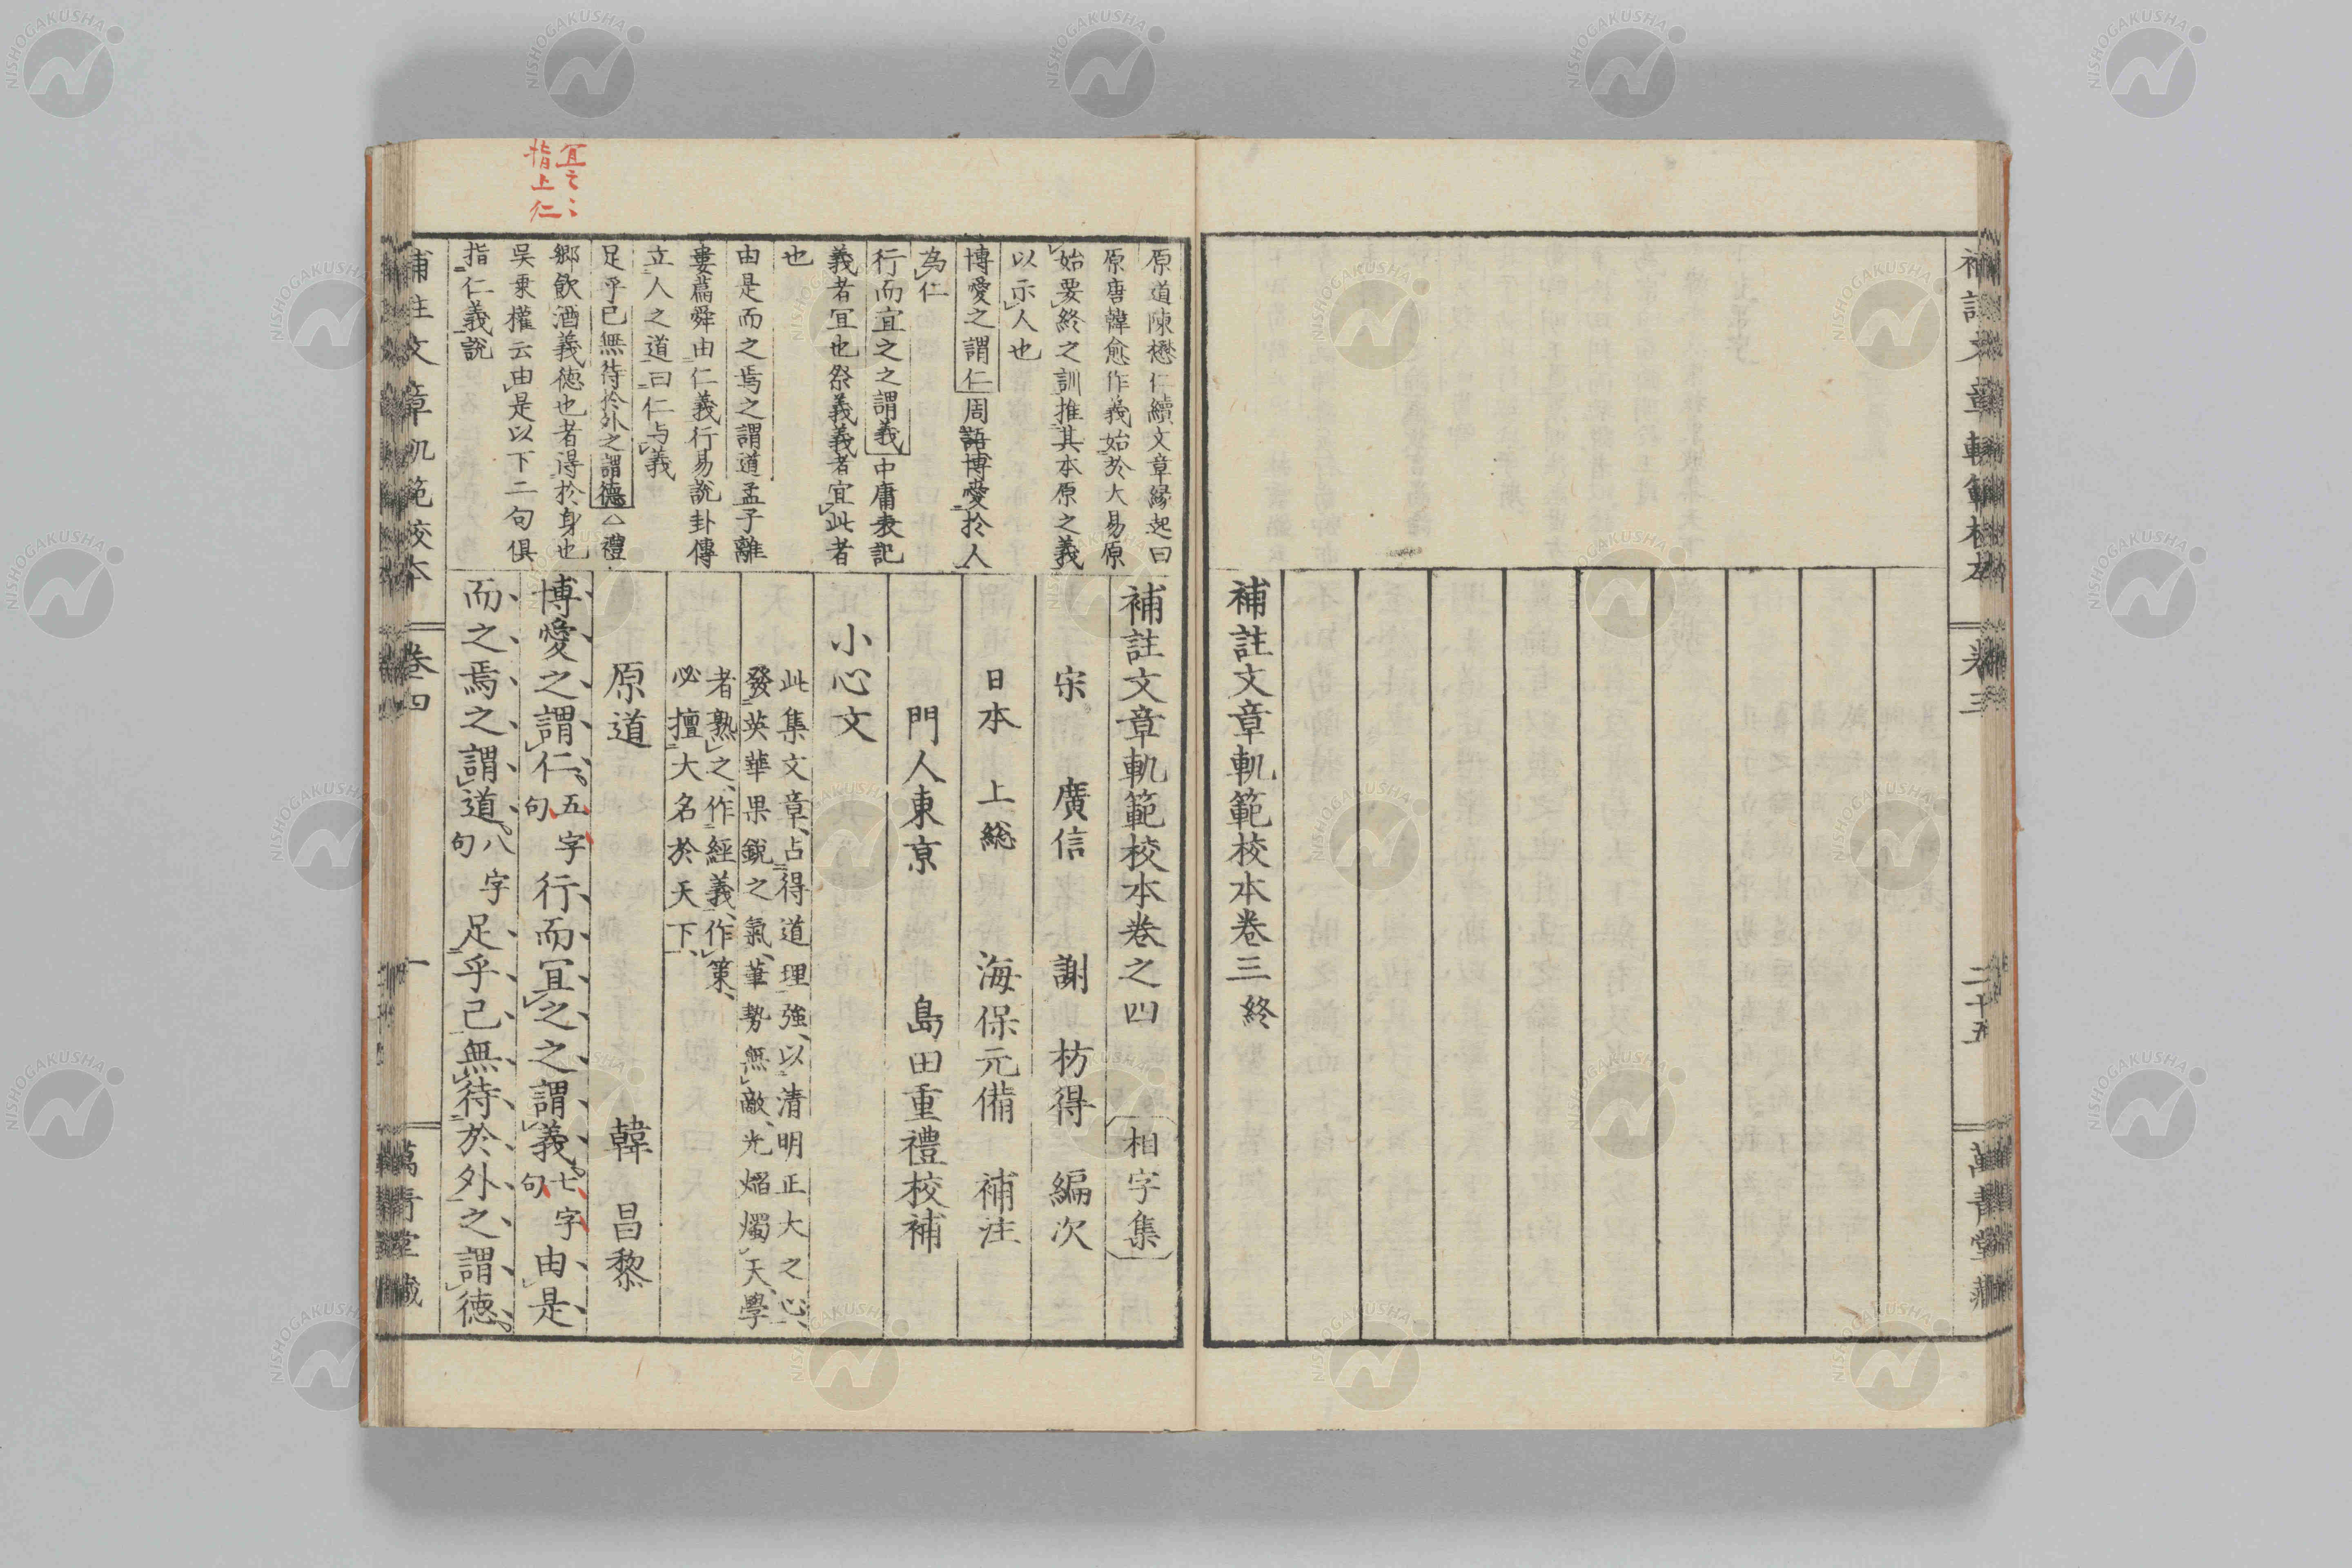 補註文章軌範校本
卷三
二十五
萬青堂藏
補註文章軌範校本卷三終
原道陳懋仁續文章緣起曰
原唐韓愈作義始於大易原
始要終之訓推其本原之義
以示人也
博愛之謂仁周語博愛於人
為仁
行而宜之之謂義中庸表記
義者宜也祭義義者宜此者
也
由是而之焉之謂道孟子離
婁篇舜由仁義行易說卦傳
立人之道曰仁与義
足乎己無待於外之謂德△禮
鄉飲酒義德也者得於身也
吳秉權云由是以下二句俱
指仁義說
宜之〻
指上仁
補註文章軌範校本卷之四 相字集
宋 廣信 謝枋得 編次
日本 上総 海保元備 補注
門人東京 島田重禮校補
小心文
此集文章占得道理強以清明正大之心
發英華果銳之氣筆勢無敵光焰燭天學
者熟之作經義作策
必擅大名於天下
原道 韓昌黎
博愛之謂仁。五字句行而宜之之謂義。七字句由是
而之焉之謂道。八字句足乎己無待於外之謂德。
補註文章軌範校本
卷四
一
萬青堂藏
NISHOGAKUSHA